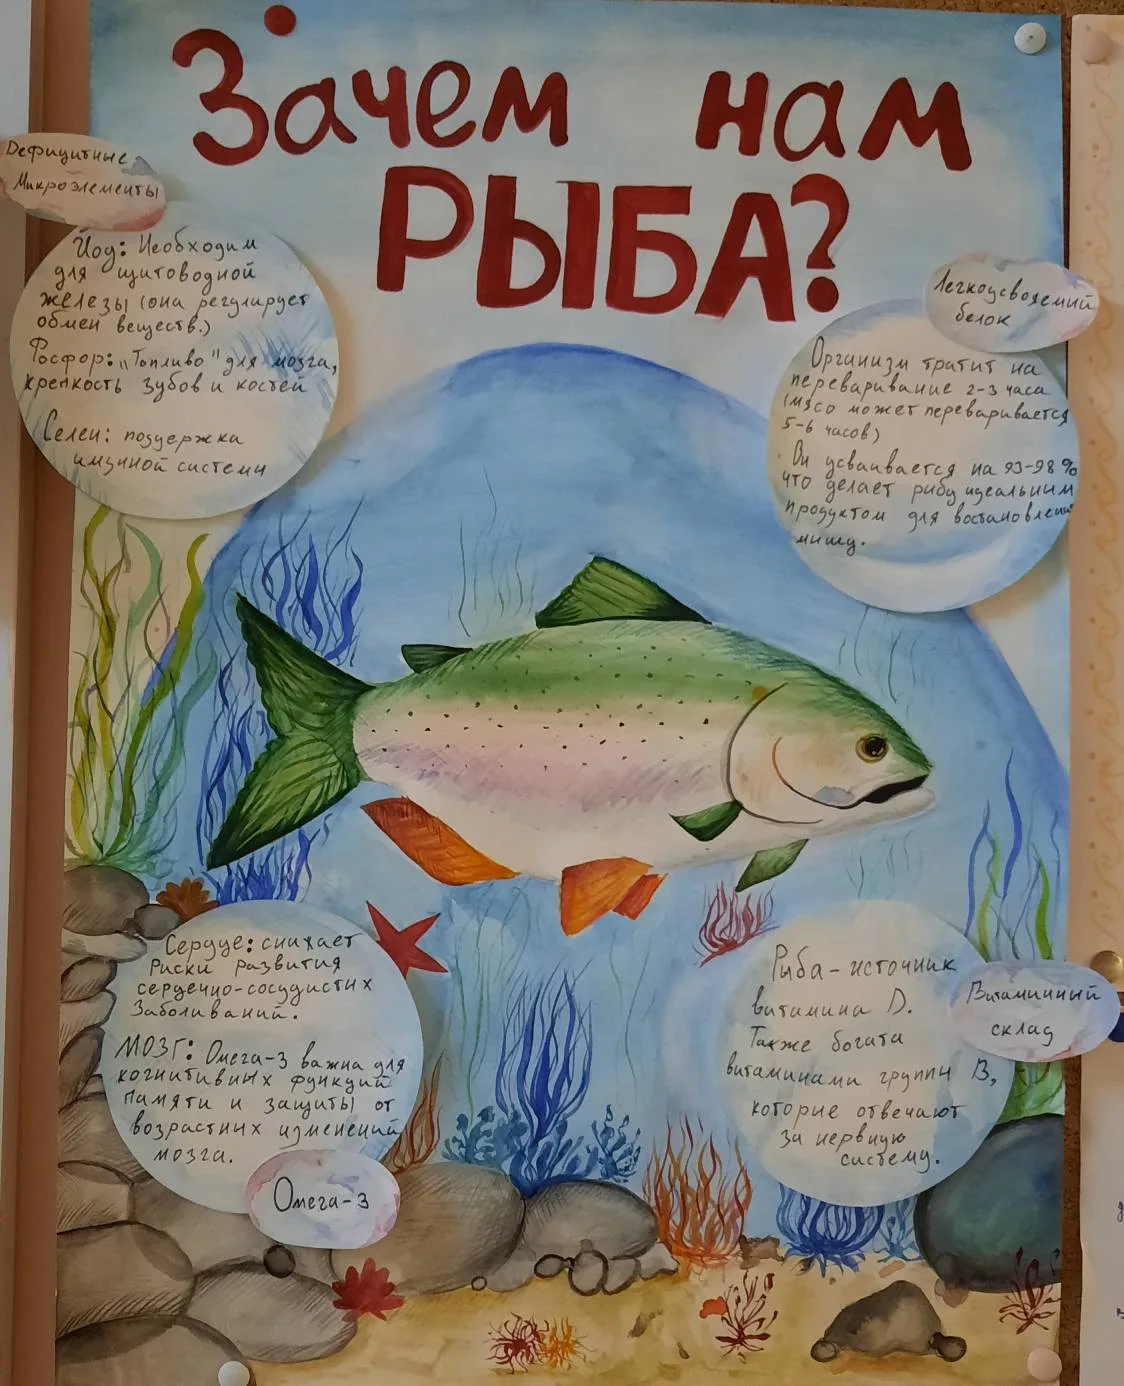 Зачем нам
РЫБА?
Дефицитные
Микроэлементы
Йод: Необходим
для щитоводной
железы (она регулирует
обмен веществ.)
Фосфор: „Топливо" для мозга,
крепкость зубов и костей
Селен: поддержка
имунной системы
Легкоусвояемый
белок
Организм тратит на
переваривание 2-3 часа
(мясо может переваривается
5-6 часов)
Он усваивается на 93-98%
что делает рибу идеальным
продуктом для востановления
мишц.
Сердце: снижает
риски развития
сердечно-сосудистих
Заболиваний.
МОЗГ: Омега-3 важна для
когнитивних функций
памяти и защиты от
возрастних изменений
мозга.
Омега-3
Риба-источник
витамина D.
Также богата
витаминами группи B,
которие отвечают
за нервную
систему.
Витаминный
склад